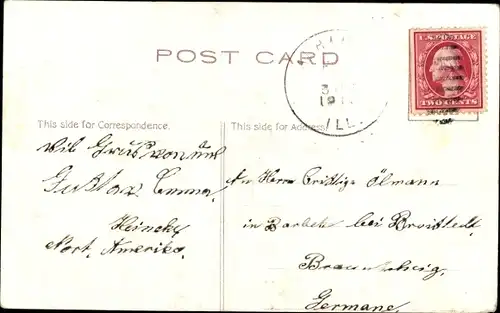 POST CARD
U.S. POSTAGE
TWO CENTS
3
191
ILL.
This side for Correspondence.
This side for Address.
viel Gruß von uns
Gustav Emma
Heincky
Nort. Amerika.
An Herrn Ölmann
in Barbek bei Broistedt
Braunschweig,
Germane.